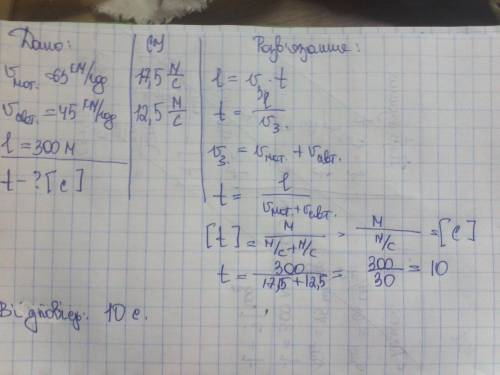 Дано:
v мот. = 63 км/год
v авт. = 45 км/год
l = 300 м
t - ? [с]
СІ
17,5 м/с
12,5 м/с
Розв'язання:
l = v₃ · t
t = l/v₃.
v₃. = v мот. + v авт.
t = l/(v мот. + v авт.)
[t] = м/(м/с + м/с) = м/(м/с) = [с]
t = 300/(17,5 + 12,5) = 300/30 = 10
Відповідь: 10 с.